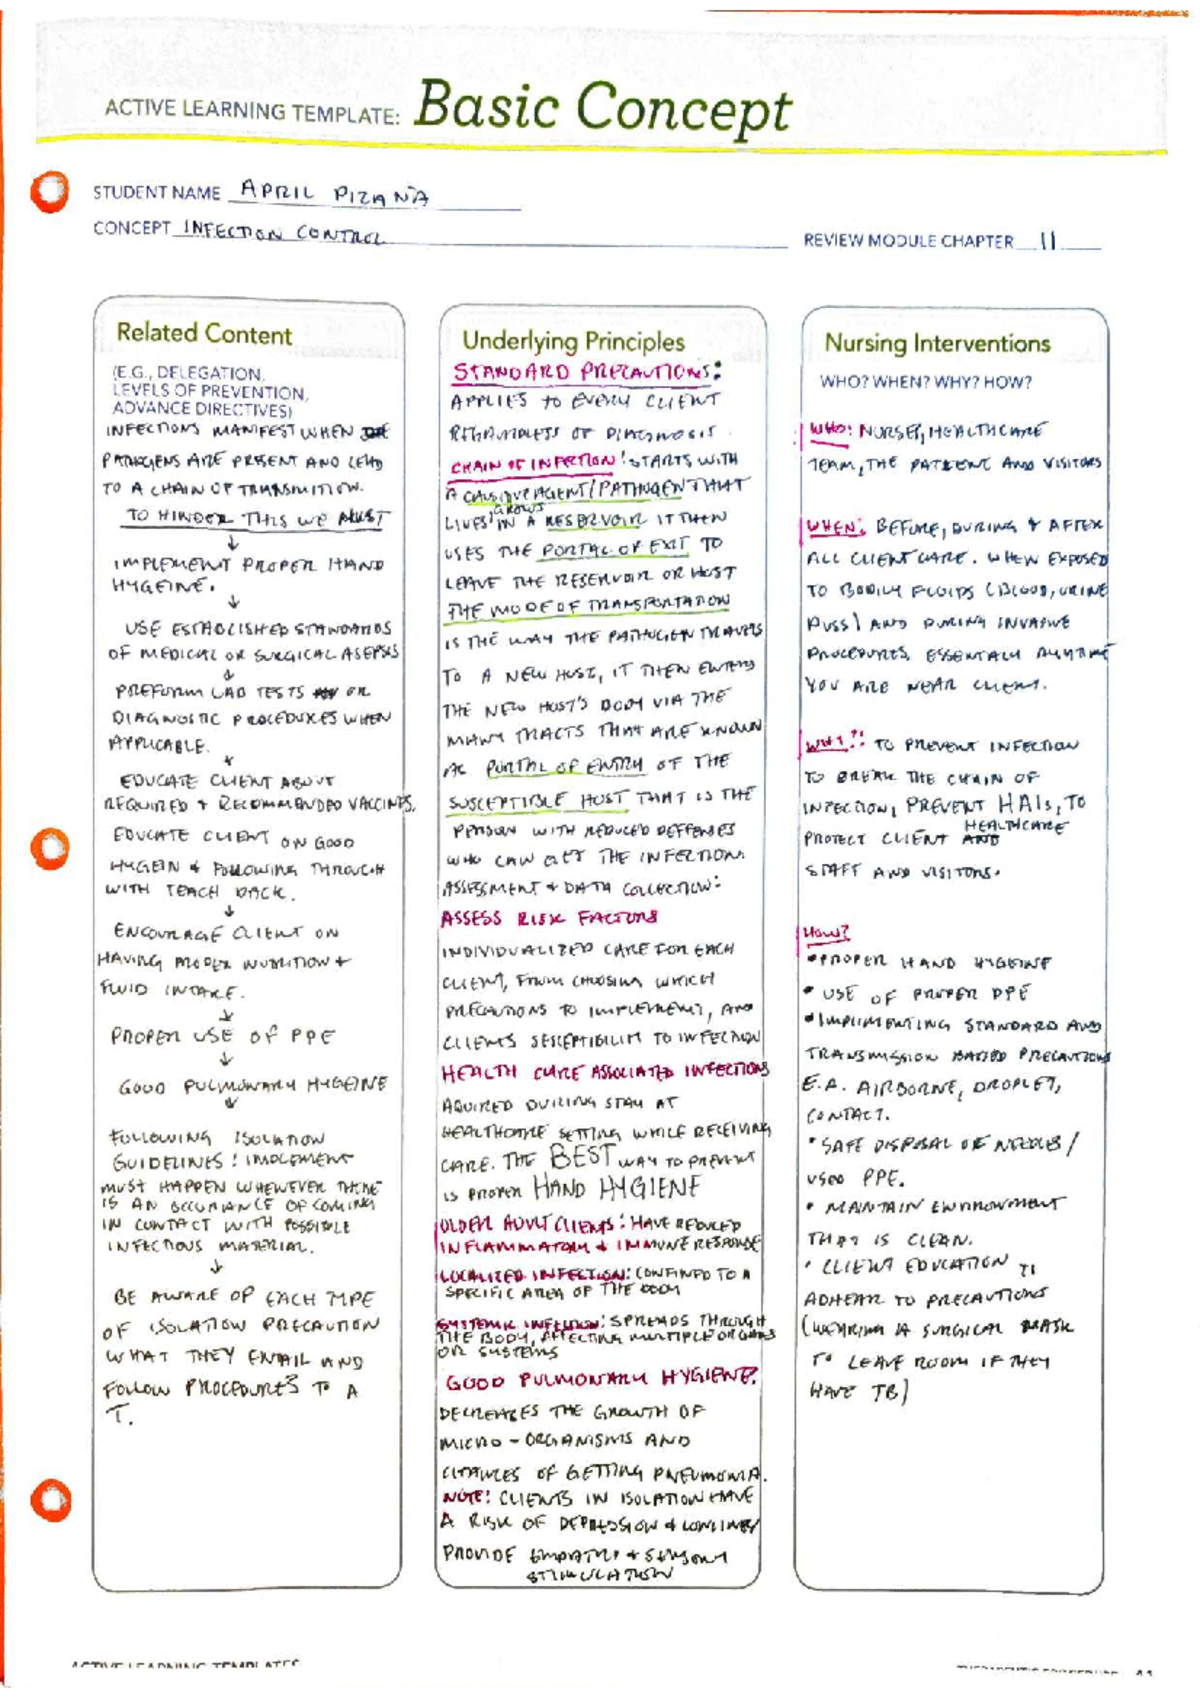 ACTIVE LEARNING TEMPLATE: Basic Concept
STUDENT NAME APRIL PIZAÑA
CONCEPT INFECTION CONTROL
REVIEW MODULE CHAPTER 11
Related Content
(E.G., DELEGATION,
LEVELS OF PREVENTION,
ADVANCE DIRECTIVES)
INFECTIONS MANIFEST WHEN
PATHOGENS ARE PRESENT AND LEAD
TO A CHAIN OF TRANSMITION.
TO HINDER THIS WE MUST
↓
IMPLEMENT PROPER HAND
HYGEINE.
↓
USE ESTABLISHED STANDARDS
OF MEDICAL OR SURGICAL ASEPSIS
↓
PREFORM LAB TESTS OR
DIAGNOSTIC PROCEDURES WHEN
APPLICABLE.
↓
EDUCATE CLIENT ABOUT
REQUIRED + RECOMMENDED VACCINES.
EDUCATE CLIENT ON GOOD
HYGEIN & FOLLOWING THROUGH
WITH TEACH BACK.
↓
ENCOURAGE CLIENT ON
HAVING PROPER NUTRITION +
FLUID INTAKE.
↓
PROPER USE OF PPE
↓
GOOD PULMONARY HYGEINE
↓
FOLLOWING ISOLATION
GUIDELINES: IMPLEMENT
MUST HAPPEN WHENEVER THERE
IS AN OCCURANCE OF COMING
IN CONTACT WITH POSSIBLE
INFECTIOUS MATERIAL.
↓
BE AWARE OF EACH TYPE
OF ISOLATION PRECAUTION
WHAT THEY ENTAIL AND
FOLLOW PROCEDURES TO A
T.
Underlying Principles
STANDARD PRECAUTIONS:
APPLIES TO EVERY CLIENT
REGARDLESS OF DIAGNOSIS.
CHAIN OF INFECTION: STARTS WITH
A CAUSATIVE AGENT/PATHOGEN THAT
LIVES/GROWS IN A RESERVOIR IT THEN
USES THE PORTAL OF EXIT TO
LEAVE THE RESERVOIR OR HOST
THE MODE OF TRANSPORTATION
IS THE WAY THE PATHOGEN TRAVELS
TO A NEW HOST, IT THEN ENTERS
THE NEW HOST'S BODY VIA THE
MANY TRACTS THAT ARE KNOWN
AS PORTAL OF ENTRY OF THE
SUSCEPTIBLE HOST THAT IS THE
PERSON WITH REDUCED DEFFENSES
WHO CAN GET THE INFECTION.
ASSESSMENT + DATA COLLECTION:
ASSESS RISK FACTORS
INDIVIDUALIZED CARE FOR EACH
CLIENT, FROM CHOOSING WHICH
PRECAUTIONS TO IMPLEMENT, AND
CLIENTS SESEPTIBILITY TO INFECTION
HEALTH CARE ASSOCIATED INFECTIONS
AQUIRED DURING STAY AT
HEALTHCARE SETTING WHILE RECEIVING
CARE. THE BEST WAY TO PREVENT
IS PROPER HAND HYGIENE
OLDER ADULT CLIENTS: HAVE REDUCED
INFLAMMATORY + IMMUNE RESPONSE
LOCALIZED INFECTION: CONFINED TO A
SPECIFIC AREA OF THE BODY
SYSTEMIC INFECTION: SPREADS THROUGH
THE BODY, AFFECTING MULTIPLE ORGANS
OR SYSTEMS
GOOD PULMONARY HYGIENE:
DECREASES THE GROWTH OF
MICRO-ORGANISMS AND
CHANCES OF GETTING PNEUMONIA.
NOTE: CLIENTS IN ISOLATION HAVE
A RISK OF DEPRESSION &
PROVIDE EMPATHY + SENSORY
STIMULATION
Nursing Interventions
WHO? WHEN? WHY? HOW?
WHO: NURSES, HEALTHCARE
TEAM, THE PATIENT AND VISITORS
WHEN: BEFORE, DURING & AFTER
ALL CLIENT CARE. WHEN EXPOSED
TO BODILY FLUIDS (BLOOD, URINE
PUSS) AND DURING INVASIVE
PROCEDURES. ESSENTIALY ANYTIME
YOU ARE NEAR CLIENT.
WHY?: TO PREVENT INFECTION
TO BREAK THE CHAIN OF
INFECTION, PREVENT HAIs, TO
PROTECT CLIENT AND HEALTHCARE
STAFF AND VISITORS.
HOW?
•PROPER HAND HYGEINE
• USE OF PROPER PPE
•IMPLIMENTING STANDARD AND
TRANSMISSION BASED PRECAUTIONS
E.A. AIRBORNE, DROPLET,
CONTACT.
• SAFE DISPOSAL OF NEEDLES/
USED PPE.
• MAINTAIN ENVIRONMENT
THAT IS CLEAN.
• CLIENT EDUCATION TO
ADHEAR TO PRECAUTIONS
(WEARING A SURGICAL MASK
TO LEAVE ROOM IF THEY
HAVE TB)
ACTIVE LEARNING TEMPLATES